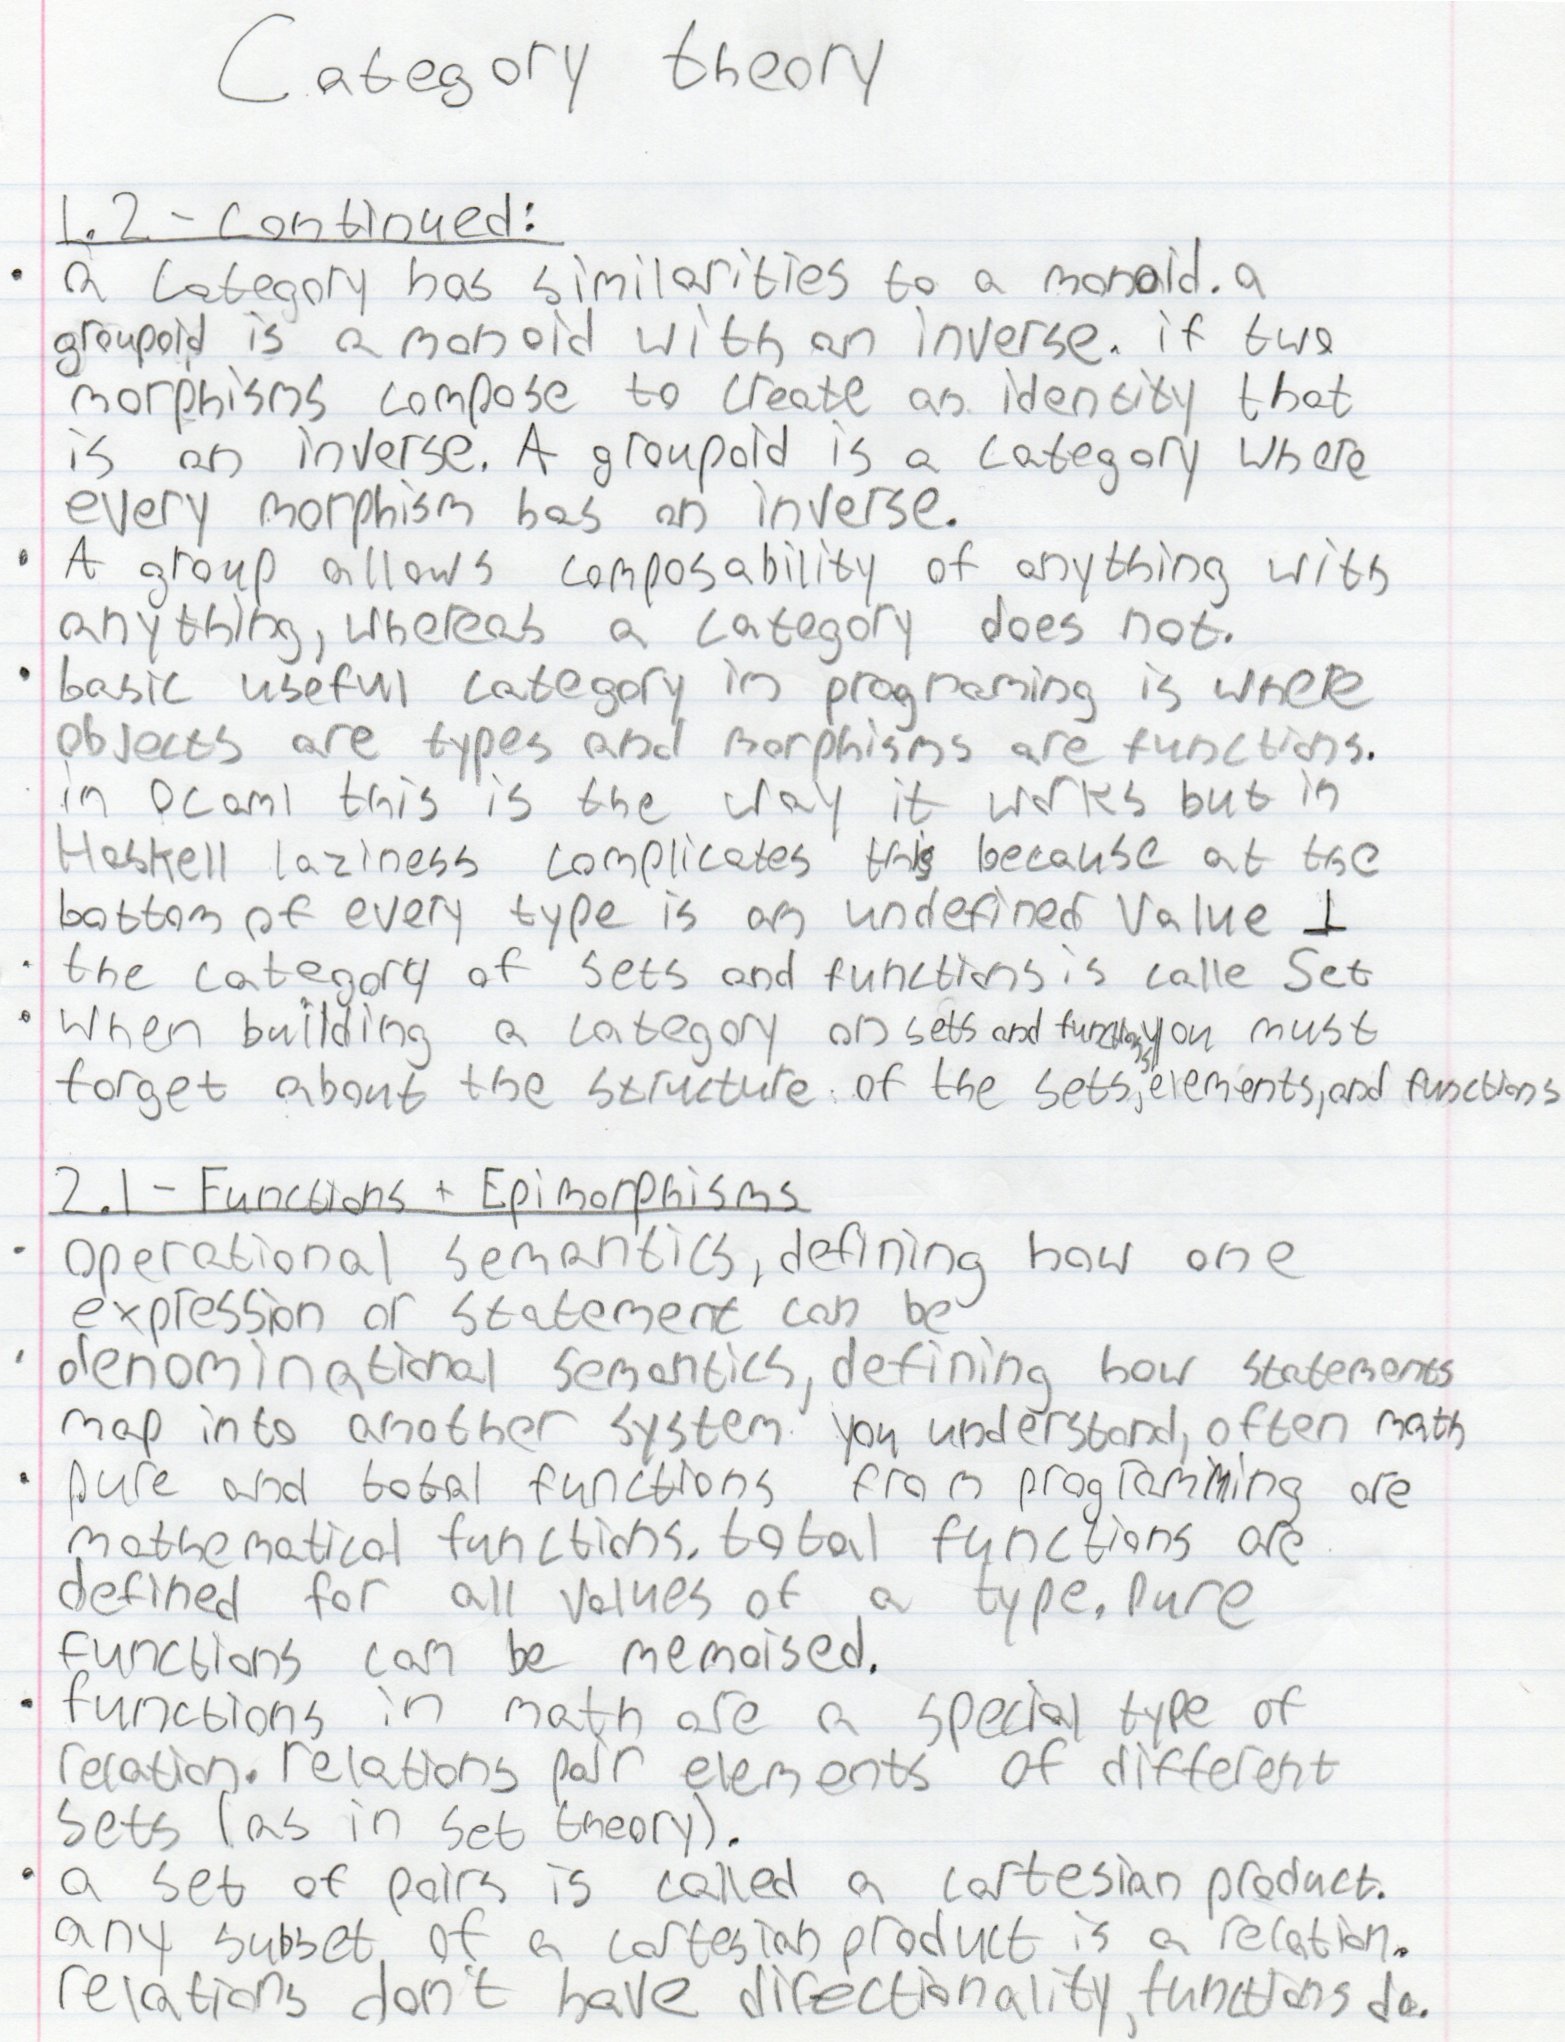 Category theory
1.2 - Continued:
• a category has similarities to a monoid. a
groupoid is a monoid with an inverse. if two
morphisms compose to create an identity that
is an inverse. A groupoid is a category where
every morphism has an inverse.
• A group allows composability of anything with
anything, whereas a category does not.
• basic useful category in programing is where
objects are types and morphisms are functions.
in Ocaml this is the way it works but in
Haskell laziness complicates this because at the
bottom of every type is an undefined value ⊥
• the category of sets and functions is calle Set
• When building a category on sets and functions, you must
forget about the structure of the sets, elements, and functions
2.1 - Functions + Epimorphisms
• operational semantics, defining how one
expression or statement can be
• denominational semantics, defining how statements
map into another system you understand, often math
• pure and total functions from programming are
mathematical functions. total functions are
defined for all values of a type. Pure
functions can be memoised.
• functions in math are a special type of
relation. relations pair elements of different
sets (as in set theory).
• a set of pairs is called a cartesian product.
any subset of a cartesian product is a relation.
relations don't have directionality, functions do.